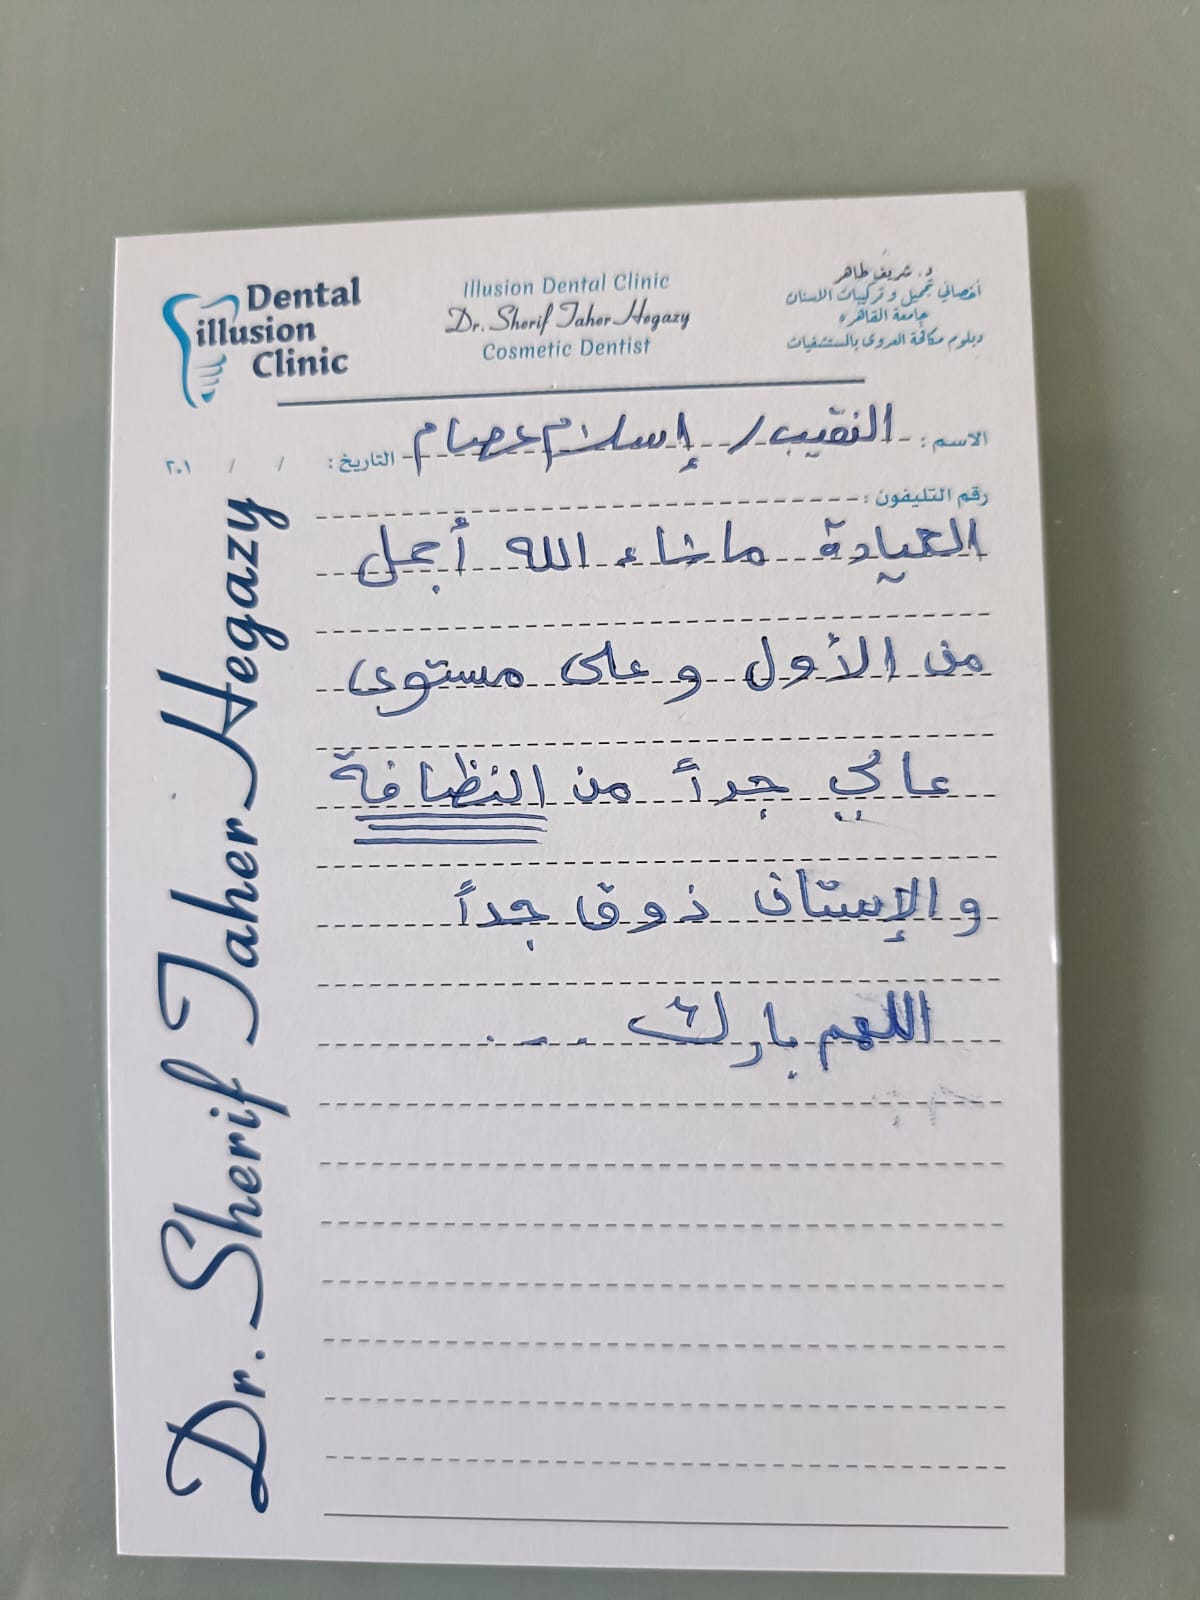 Dental
illusion
Clinic
Illusion Dental Clinic
Dr. Sherif Taher Hegazy
Cosmetic Dentist
د. شريف طاهر
أخصائي تجميل و تركيبات الاسنان
جامعة القاهره
دبلوم مكافحة العدوى بالمستشفيات
الاسم : النقيب / إسلام عصام التاريخ : / / ٢٠١
رقم التليفون :
العيادة ماشاء الله أجمل
من الأول و على مستوى
عالي جداً من النظافة
و الإستان ذوق جداً
اللهم بارك ...
Dr. Sherif Taher Hegazy